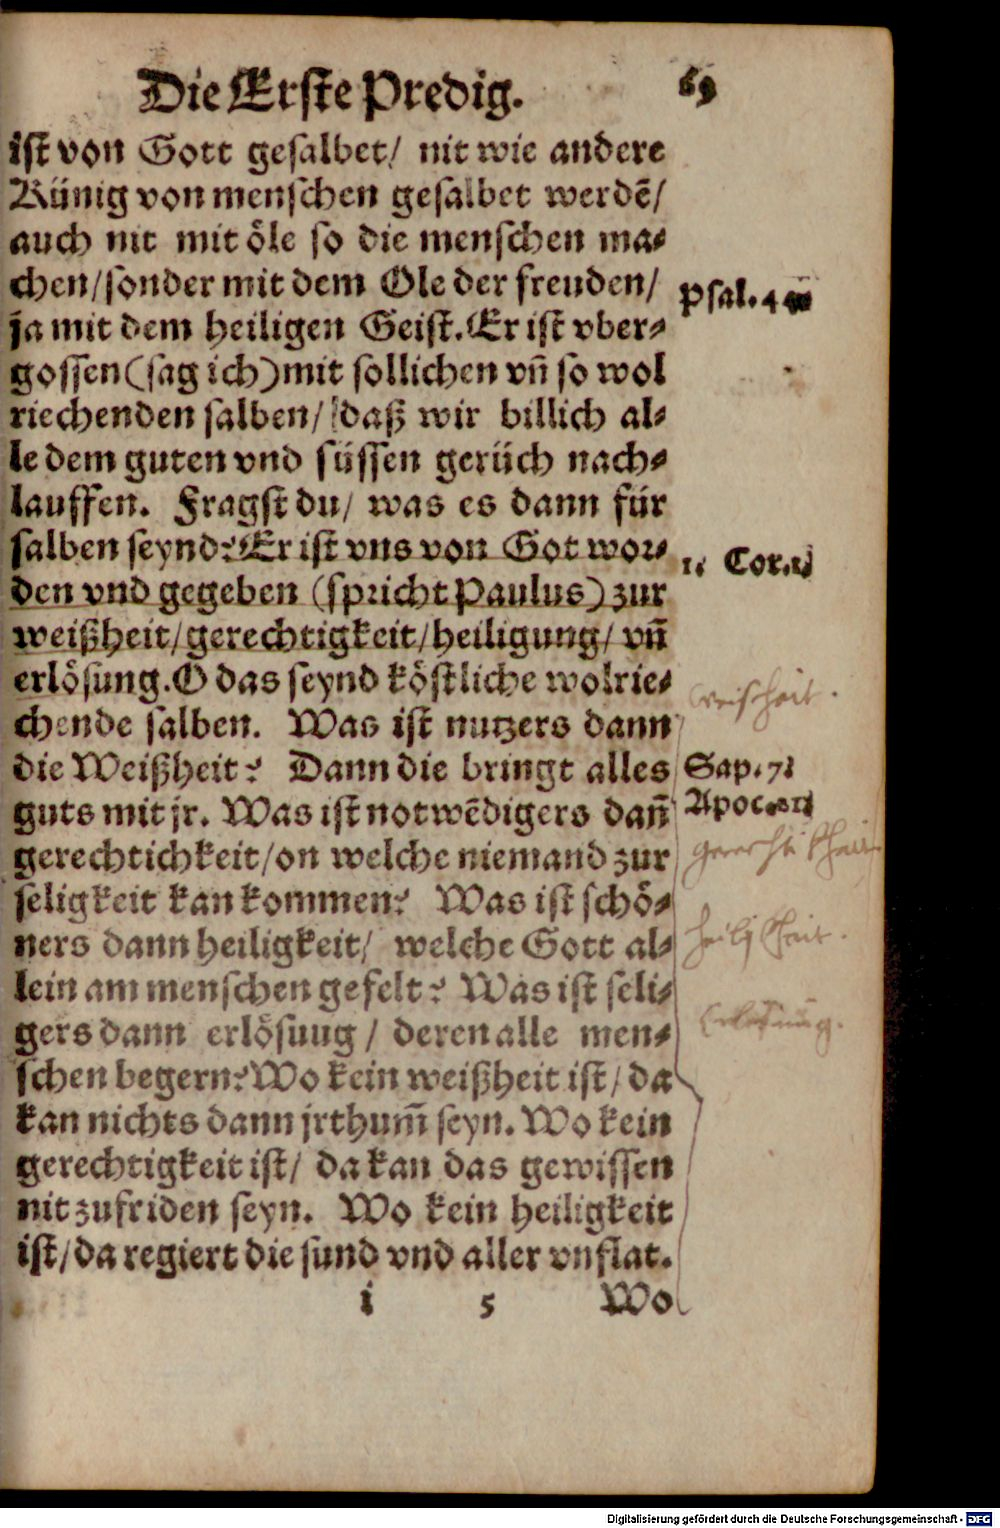 Die Erste Predig. 69
ist von Gott gesalbet/ nit wie andere
Künig von menschen gesalbet werdē/
auch nit mit öle so die menschen ma⸗
chen/sonder mit dem Ole der freuden/
Psal.44
ja mit dem heiligen Geist. Er ist vber⸗
gossen (sag ich) mit sollichen vñ so wol
riechenden salben/ daß wir billich al⸗
le dem guten vnd süssen gerüch nach⸗
lauffen. Fragst du/ was es dann für
salben seynd? Er ist vns von Got wor⸗
1. Cor.1
den vnd gegeben (spricht Paulus) zur
weißheit/gerechtigkeit/heiligung/ vñ
erlösung. O das seynd köstliche wolrie⸗
weischeit.
chende salben. Was ist nutzers dann
die Weißheit? Dann die bringt alles
Sap.7
guts mit jr. Was ist notwēdigers dañ
Apoc.
gerechtichkeit/on welche niemand zur
seligkeit kan kommen? Was ist schö⸗
ners dann heiligkeit/ welche Gott al⸗
lein am menschen gefelt? Was ist seli⸗
gers dann erlösuug / deren alle men⸗
Erlosung.
schen begern? Wo kein weißheit ist/ da
kan nichts dann jrthum̃ seyn. Wo kein
gerechtigkeit ist/ da kan das gewissen
nit zufriden seyn. Wo kein heiligkeit
ist/da regiert die sund vnd aller vnflat.
i 5 Wo
Digitalisierung gefördert durch die Deutsche Forschungsgemeinschaft - DFG